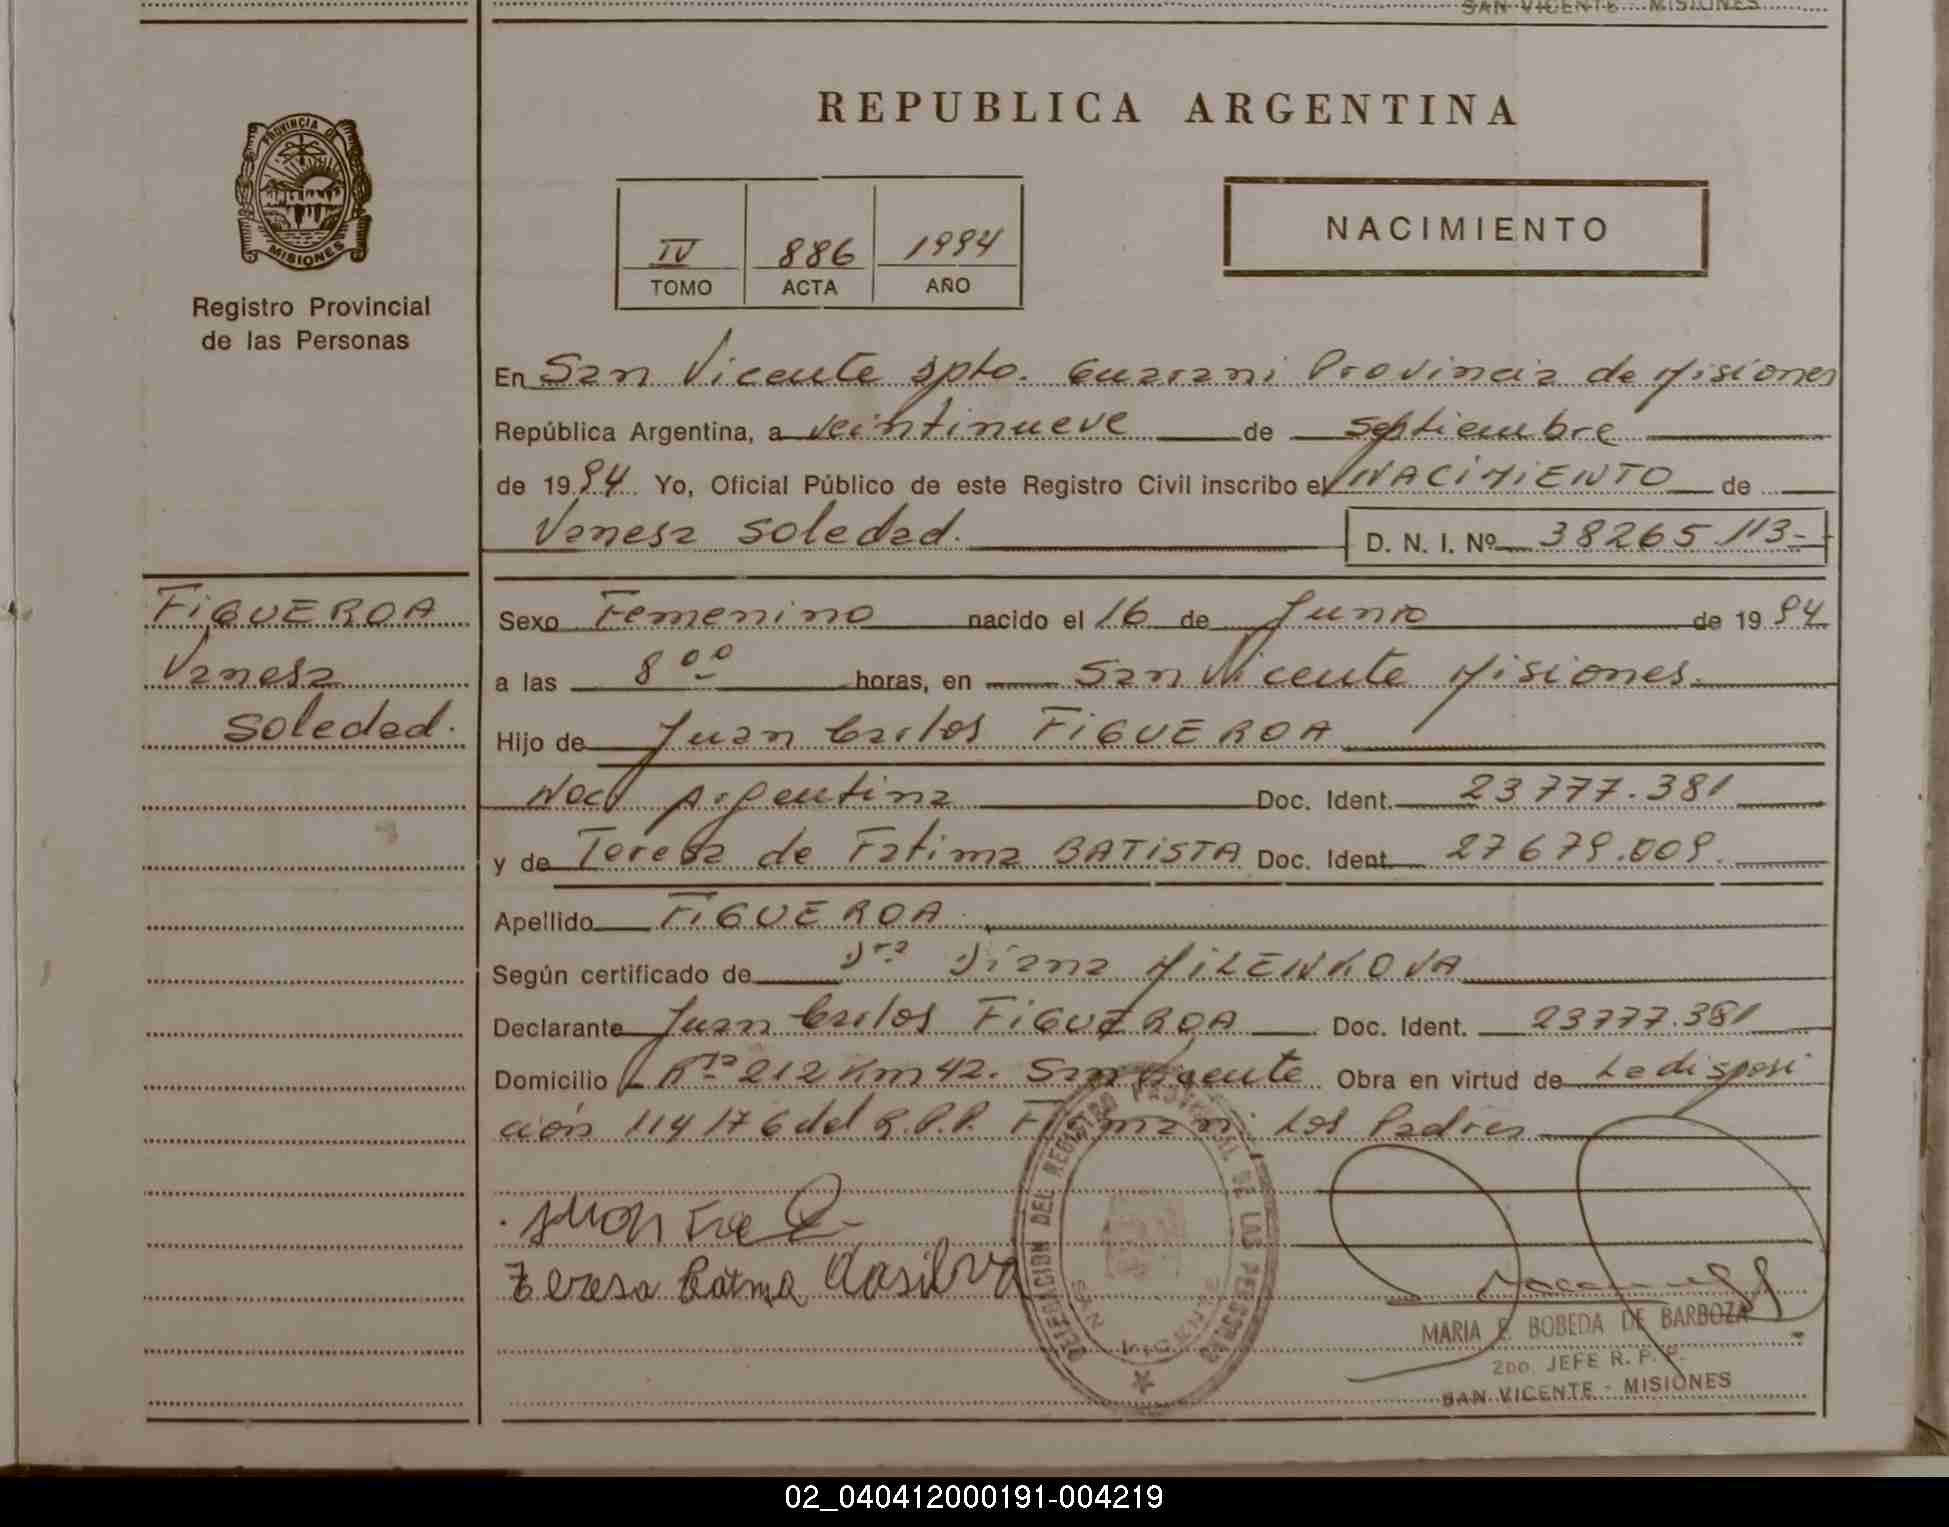 SAN VICENTE - MISIONES
REPUBLICA ARGENTINA
PROVINCIA DE
MISIONES
Registro Provincial
de las Personas
IV 886 1994
TOMO ACTA AÑO
NACIMIENTO
En San Vicente Dpto. Guarani Provincia de Misiones
República Argentina, a veintinueve de septiembre
de 1994 Yo, Oficial Público de este Registro Civil inscribo el NACIMIENTO de
Vanesa Soledad.
D. N. I. Nº 38265.113-
FIGUEROA
Vanesa
Soledad.
Sexo Femenino nacido el 16 de Junio de 1994
a las 8 00 horas, en San Vicente Misiones.
Hijo de Juan Carlos FIGUEROA
Nac. Argentina Doc. Ident. 23777.381
y de Teresa de Fatima BATISTA Doc. Ident. 27679.009.
Apellido FIGUEROA.
Según certificado de Dra Diana MILENKOVA
Declarante Juan Carlos FIGUEROA Doc. Ident. 23777.381
Domicilio Rta 212 Km 42. San Vicente Obra en virtud de La disposi
ción 114/76 del R.P.P. Firman: Los Padres
Teresa Fatima dasilva
DELEGACION DEL REGISTRO PROVINCIAL DE LAS PERSONAS
SAN VICENTE
MARIA E. BOBEDA DE BARBOZA
2DO. JEFE R. P. P.
SAN VICENTE - MISIONES
02_040412000191-004219